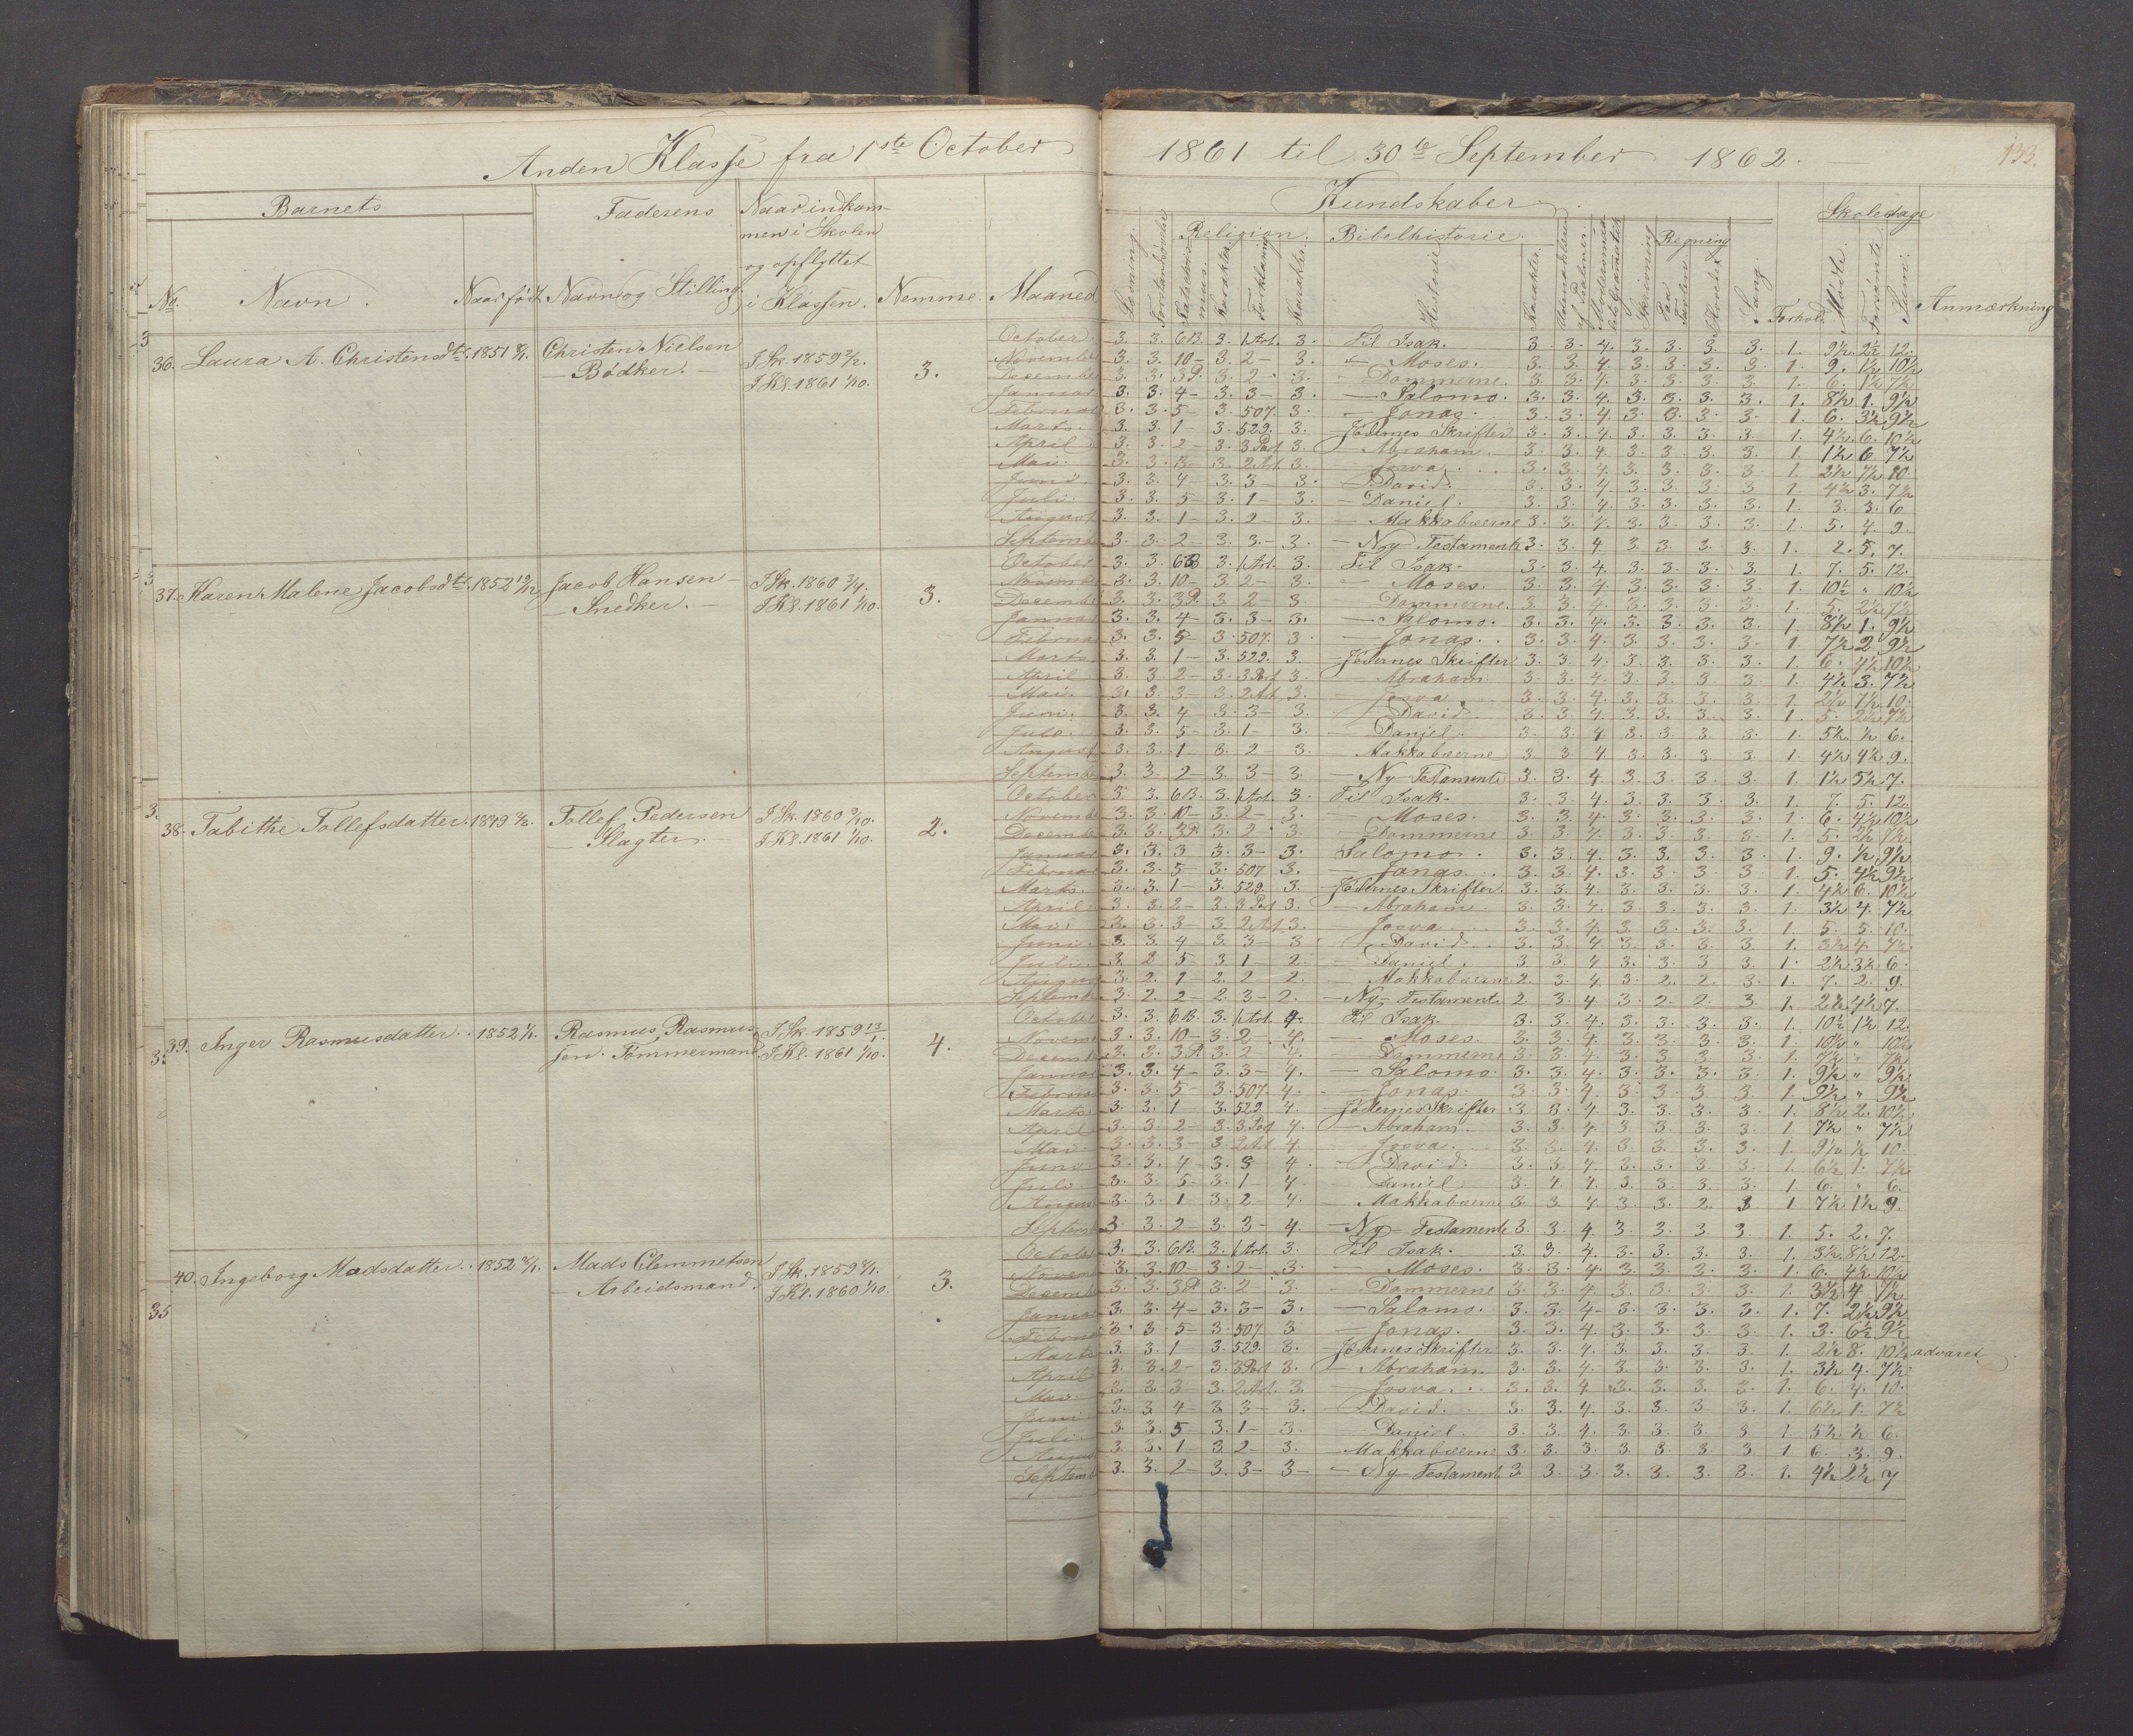 Anden Klasse fra 1ste October 1861 til 30te September 1862. 133.
Barnets Faderens Naar indkom-
men i Skolen
og opflyttet
i Klassen.
No. Navn. Naar født Navn og Stilling Nemme. Maaned
Kundskaber. Skoledage
Religion. Bibelhistorie. Regning
Læsning. Karakter. Forklaring Karakter. Historie Karakter. Skrivning Paa Tavlen. Hovedet Sang. Forhold Mødte. Forsømte Sum. Anmærkning
36. Laura A. Christensdtr. 1851 Christen Nielsen I Sk. 1859
— Bødker. — I Kl. 1861 1/10. 3.
October 3. 3. 6B. 3. 1 Art. 3. Til Isak. 3. 3. 4. 3. 3. 3. 3. 1. 9½ 2½ 12.
November 3. 3. 10 — 3. 2 — 3. — Moses. 3. 3. 4. 3. 3. 3. 3. 1. 9. 1½ 10½
December 3. 3. 3P. 3. 2 — 3. — Dommerne. 3. 3. 4. 3. 3. 3. 3. 1. 6. 1½ 7½
Januar 3. 3. 4 — 3. 3 — 3. — Salomo. 3. 3. 4. 3. 3. 3. 3. 1. 8½ 1. 9½
Februar 3. 3. 5 — 3. 507. 3. — Jonas. 3. 3. 4. 3. 3. 3. 3. 1. 6. 3½ 9½
Marts. 3. 3. 1 — 3. 529. 3. — Jødernes Skrifter 3. 3. 4. 3. 3. 3. 3. 1. 4½ 6. 10½
April 3. 3. 2 — 3. 3 Part 3. — Abraham. 3. 3. 4. 3. 3. 3. 3. 1. 1½ 6 7½
Mai. 3. 3. 3. 3. 2 Art. 3. — Josva. 3. 3. 4. 3. 3. 3. 3. 1. 2½ 7½ 10.
Juni. 3. 3. 4 — 3. 3 — 3. — David. 3. 3. 4. 3. 3. 3. 3. 1. 4½ 3. 7½
Juli. 3. 3. 5 — 3. 1 — 3. — Daniel. 3. 3. 4. 3. 3. 3. 3. 1. 3. 3. 6
August 3. 3. 1 — 3. 2 — 3. — Makkabæerne 3. 3. 4. 3. 3. 3. 3. 1. 5. 4. 9.
September 3. 3. 2 — 3. 3. — 3. — Ny Testamente 3. 3. 4. 3. 3. 3. 3. 1. 2. 5. 7.
37. Karen Malene Jacobsdtr. 1852 Jacob Hansen — I Sk. 1860
— Snedker. — I Kl. 1861 1/10. 3.
October 3. 3. 6B 3. 1 Art. 3. Til Isak. 3. 3. 4. 3. 3. 3. 3. 1. 7. 5. 12.
November 3. 3. 10 — 3. 2 — 3. — Moses. 3. 3. 4. 3. 3. 3. 3. 1. 10½ " 10½
December 3. 3. 3P. 3. 2 — 3. — Dommerne. 3. 3. 4. 3. 3. 3. 3. 1. 5. 2½ 7½
Januar 3. 3. 4 — 3. 3 — 3. — Salomo. 3. 3. 4. 3. 3. 3. 3. 1. 8½ 1. 9½
Februar 3. 3. 5 — 3. 507. 3. — Jonas. 3. 3. 4. 3. 3. 3. 3. 1. 7½ 2. 9½
Marts 3. 3. 1 — 3. 529. 3. — Jødernes Skrifter 3. 3. 4. 3. 3. 3. 3. 1. 6. 4½ 10½
April 3. 3. 2 — 3. 3 Part 3. — Abraham. 3. 3. 4. 3. 3. 3. 3. 1. 4½ 3. 7½
Mai. 3. 3. 3 — 3. 2 Art 3. — Josva 3. 3. 4. 3. 3. 3. 3. 1. 2½ 7½ 10.
Juni. 3. 3. 4 3. 3 — 3. — David 3. 3. 4. 3. 3. 3. 3. 1. 5. 2½ 7½
Juli. 3. 3. 5 — 3. 1 — 3. — Daniel. 3. 3. 4. 3. 3. 3. 3. 1. 5½ ½ 6.
August 3. 3. 1 — 3. 2 — 3. Makkabæerne 3. 3. 4. 3. 3. 3. 3. 1. 4½ 4½ 9.
September 3. 3. 2 — 3. 3 — 3. — Ny Testamente 3. 3. 4. 3. 3. 3. 3. 1. 1½ 5½ 7.
38. Tabithe Tollefsdatter. 1849 Tollef Pedersen I Sk. 1860
— Slagter. — I Kl. 1861 1/10. 2.
October 3. 3. 6B. 3. 1 Art. 3. Til Isak. 3. 3. 4. 3. 3. 3. 3. 1. 7. 5. 12.
November 3. 3. 10 — 3. 2 — 3. Moses. 3. 3. 4. 3. 3. 3. 3. 1. 6. 4½ 10½
December 3. 3. 3P. 3. 2 3. — Dommerne 3. 3. 4. 3. 3. 3. 3. 1. 5. 2½ 7½
Januar 3. 3. 3 3. 3 — 3. Salomo. 3. 3. 4. 3. 3. 3. 3. 1. 9. ½ 9½
Februar 3. 3. 5 — 3. 507 3. — Jonas. 3. 3. 4. 3. 3. 3. 3. 1. 5. 4½ 9½
Marts. 3. 3. 1 — 3. 529. 3. — Jødernes Skrifter. 3. 3. 4. 3. 3. 3. 3. 1. 4½ 6. 10½
April 3. 3. 2 — 3. 3 Part 3. — Abraham. 3. 3. 4. 3. 3. 3. 3. 1. 3½ 4. 7½
Mai 3. 3. 3 — 3. 2 Art 3. — Josva 3. 3. 4. 3. 3. 3. 3. 1. 5. 5. 10.
Juni. 3. 3. 4 — 3. 3 — 3. — David. 3. 3. 4. 3. 3. 3. 3. 1. 3½ 4. 7½
Juli. 3. 2 5 — 3. 1 — 2. — Daniel. 3. 3. 4 3. 3. 3. 3. 1. 2½ 3½ 6.
August 3. 2. 1 — 2. 2 2. — Makkabæerne 2. 3. 4. 3. 2. 2. 3. 1. 7. 2. 9.
September 3. 2. 2 — 2. 3 — 2. — Ny Testamente 2. 3. 4. 3. 2. 2. 3. 1. 2½ 4½ 7.
39. Inger Rasmusdatter. 1852 Rasmus Rasmus- I Sk. 1859 13/1
sen. Tömmermand I Kl. 1861 1/10. 4.
October 3. 3. 6B. 3. 1 Art. 4. Til Isak. 3. 3. 4. 3. 3. 3. 3. 1. 10½ 1½ 12.
November 3. 3. 10 — 3. 2 4. — Moses. 3. 3. 4. 3. 3. 3. 3. 1. 10½ " 10½
December 3. 3. 3P. 3. 2 4. — Dommerne 3. 3. 4. 3. 3. 3. 3. 1. 7½ " 7½
Januar 3. 3. 4 — 3. 3 — 4. — Salomo 3. 3. 4. 3. 3. 3. 3. 1. 9½ " 9½
Februar 3. 3. 5 — 3. 507. 4. — Jonas. 3. 3. 4. 3. 3. 3. 3. 1. 9½ " 9½
Marts. 3. 3. 1 — 3. 529. 4. — Jødernes Skrifter 3. 3. 4. 3. 3. 3. 3. 1. 8½ 2. 10½
April 3. 3. 2 — 3. 3 Part 4. — Abraham. 3. 3. 4. 3. 3. 3. 3. 1. 7½ " 7½
Mai. 3. 3. 3 — 3. 2 Art 4 — Josva. 3. 3. 4. 3. 3. 3. 3. 1. 9½ ½ 10.
Juni 3. 3. 4 — 3. 3 4. — David. 3. 3. 4. 3. 3. 3. 3. 1. 6½ 1. 7½
Juli 3. 3. 5 — 3. 1 4. — Daniel 3. 4. 4. 3. 3. 3. 3. 1. 6. " 6.
August 3. 3. 1 3. 2 — 4. — Makkabæerne 3. 3. 4. 3. 3. 2. 3 1 7½ 1½ 9.
September 3 3. 2 — 3. 3 — 4. — Ny Testamente 3. 3. 4. 3. 3. 3. 3 1. 5. 2. 7.
40. Ingeborg Madsdatter. 1852 Mads Clemmetsen I Sk. 1859
— Arbeidsmand. I Kl. 1860 1/10. 3.
October 3. 3. 6B. 3. 1 Art. 3. Til Isak. 3. 3. 4. 3. 3. 3. 3. 1. 3½ 8½ 12.
November 3. 3. 10 — 3. 2 — 3. — Moses. 3. 3. 4. 3. 3. 3. 3. 1. 6. 4½ 10½
December 3. 3. 3P. 3. 2 3. — Dommerne 3. 3. 4. 3. 3. 3. 3. 1. 3½ 4 7½
Januar 3. 3. 4 — 3. 3 — 3. — Salomo. 3. 3. 4 — 3. 3. 3. 3. 1. 7. 2½ 9½
Februar 3. 3 5 — 3. 507. 3 — Jonas. 3. 3. 4. 3. 3. 3. 3. 1. 3. 6½ 9½
Marts 3. 3. 1 — 3. 529. 3. — Jødernes Skrifter 3. 3. 4. 3. 3. 3. 3. 1. 2½ 8. 10½ advaret.
April 3. 3. 2 — 3. 3 Part 3. — Abraham 3. 3. 4. 3. 3. 3. 3. 1. 3½ 4. 7½
Mai. 3. 3. 3 — 3. 2 Art. 3. — Josva. 3. 3. 4. 3. 3. 3. 3. 1. 6. 4. 10.
Juni 3. 3. 4 — 3. 3 — 3. — David. 3. 3. 4. 3. 3. 3. 3. 1. 6½ 1. 7½
Juli 3. 3. 5 3. 1 — 3. Daniel. 3. 3. 4. 3. 3. 3. 3. 1. 5½ ½ 6.
August 3. 3. 1 3. 2 — 3. — Makkabæerne 3. 3. 3. 3. 3. 3. 3 1 6. 3. 9.
September 3. 3. 2 — 3. 3 — 3 — — Ny Testament 3 3. 3. 3. 3. 3. 3. 1. 4½ 2½ 7
35